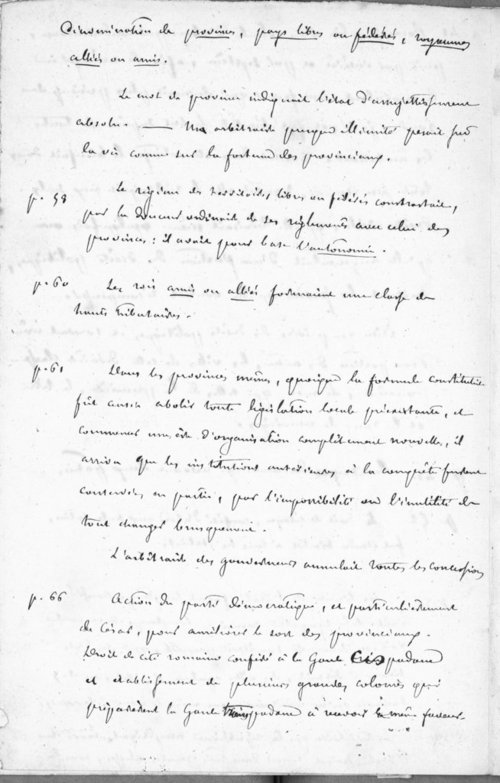 Dénomination de provinces, pays libres ou fédérés, royaumes
alliés ou amis.
Le mot de province indiquait l'état d'assujettissement
absolu. — Un arbitraire presque illimité pesait sur
la vie comme sur la fortune des provinciaux.
p. 58 Le régime des territoires libres ou fédérés contrastait,
par la douceur ordinaire de ses règlements avec celui des
provinces : il avait pour base l'autonomie.
p. 60 Les rois amis ou alliés formaient une classe de
hauts tributaires.
p. 61 Dans les provinces mêmes, quoique la formule constitutive
fût censée abolir toute législation locale préexistante, et
commencer une ère d'organisation complètement nouvelle, il
arriva que les institutions antérieures à la conquête furent
conservées en partie, par l'impossibilité ou l'inutilité de
tout changer brusquement.
L'arbitraire des gouverneurs annulait toutes les concessions
p. 66 Action du parti démocratique, et particulièrement
de César, pour améliorer le sort des provinciaux.
Droit de cité romaine conféré à la Gaule Cispadane
et établissement de plusieurs grandes colonies qui
préparèrent la Gaule transpadane à recevoir la même faveur.